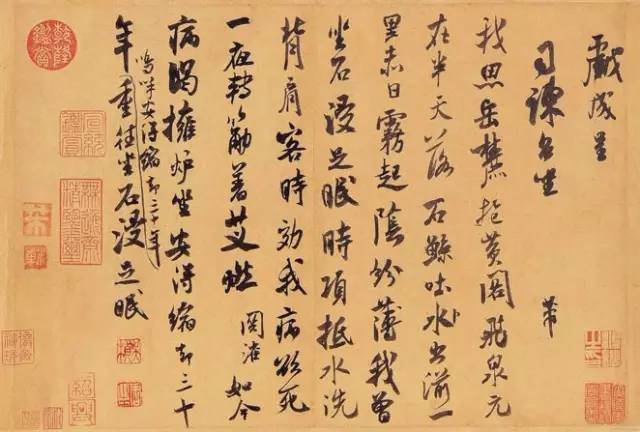 戲成呈
司諫台坐
芾
我思岳麓抱黃閣飛泉元
在半天落石鯨吐水出湔一
里赤日霧起蔭紛薄我曾
坐石浸足眠時項抵水洗
背肩客時効我病欲死
一夜轉筋著艾燃 關灌如今
病渴擁爐坐安得縮却三十
嗚呼安得縮却三十年
年重往坐石浸足眠
乾隆鑑賞
紹興